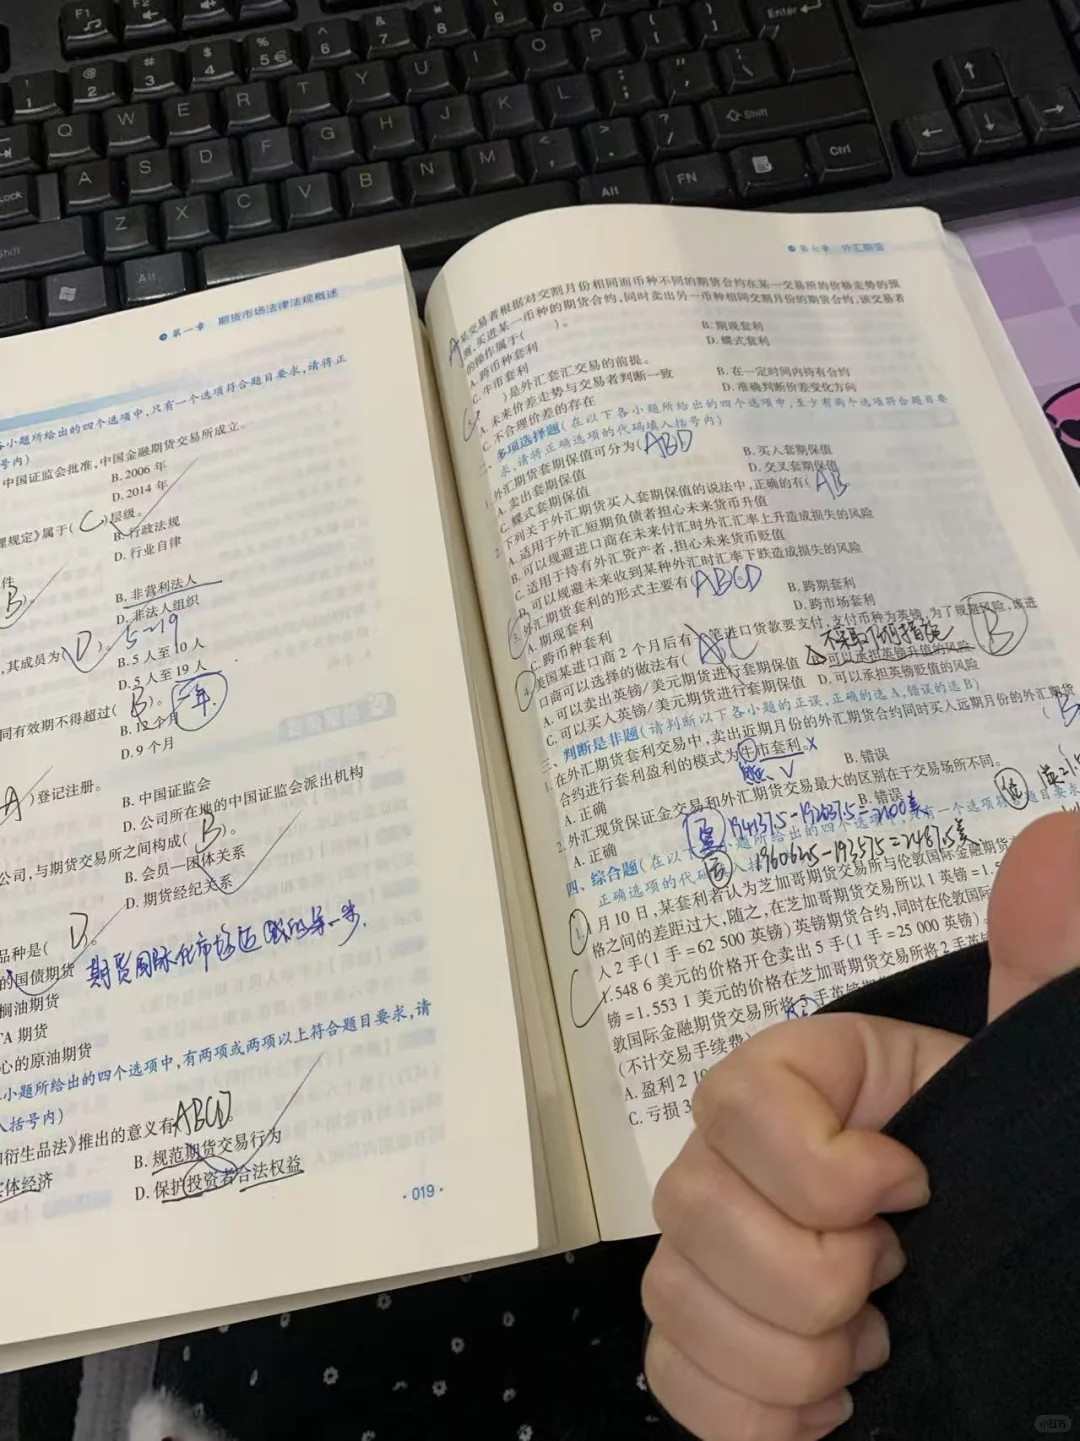 第一章 期货市场法律法规概述
各小题所给出的四个选项中，只有一个选项符合题目要求，请将正
号内)
中国证监会批准，中国金融期货交易所成立。
B. 2006 年
D. 2014 年
理规定》属于( C )层级。
B. 行政法规
D. 行业自律
件
B
B. 非营利法人
D. 非法人组织
，其成员为( D )。 5-19
B. 5 人至 10 人
D. 5 人至 19 人
同有效期不得超过( B )。
B. 12 个月 一年
D. 9 个月
A )登记注册。
B. 中国证监会
D. 公司所在地的中国证监会派出机构
公司，与期货交易所之间构成( B )。
B. 会员—团体关系
D. 期货经纪关系
品种是( D )。
的国债期货
榈油期货
TA 期货
心的原油期货
小题所给出的四个选项中，有两项或两项以上符合题目要求，请
入括号内)
和衍生品法》推出的意义有 ABCD
B. 规范期货交易行为
实体经济
D. 保护投资者合法权益
·019·
第七章 外汇期货
A 某交易者根据对交割月份相同而币种不同的期货合约在某一交易所的价格走势的预
测，买进某一币种的期货合约，同时卖出另一币种相同交割月份的期货合约，该交易者
的操作属于( )。
A. 跨币种套利
B. 期现套利
C. 牛市套利
D. 蝶式套利
)是外汇套汇交易的前提。
A. 未来价差走势与交易者判断一致
B. 在一定时间内持有合约
C. 不合理价差的存在
D. 准确判断价差变化方向
二、多项选择题(在以下各小题所给出的四个选项中，至少有两个选项符合题目要
求，请将正确选项的代码填入括号内)
1. 外汇期货套期保值可分为( ABD
A. 卖出套期保值
B. 买入套期保值
C. 蝶式套期保值
D. 交叉套期保值
2. 下列关于外汇期货买入套期保值的说法中，正确的有( AB
A. 适用于外汇短期负债者担心未来货币升值
B. 可以规避进口商在未来付汇时外汇汇率上升造成损失的风险
C. 适用于持有外汇资产者，担心未来货币贬值
D. 可以规避未来收到某种外汇时汇率下跌造成损失的风险
3. 外汇期货套利的形式主要有( ABCD
A. 期现套利
B. 跨期套利
C. 跨币种套利
D. 跨市场套利
4. 美国某进口商 2 个月后有一笔进口货款要支付，支付币种为英镑，为了规避风险，该进
口商可以选择的做法有(
不采取任何措施 B
A. 可以卖出英镑/美元期货进行套期保值
可以承担英镑升值的风险
C. 可以买入英镑/美元期货进行套期保值
D. 可以承担英镑贬值的风险
三、判断是非题(请判断以下各小题的正误，正确的选 A，错误的选 B)
1. 在外汇期货套利交易中，卖出近期月份的外汇期货合约同时买入远期月份的外汇期货
合约进行套利盈利的模式为牛市套利。 ( B
熊 √
A. 正确
B. 错误
2. 外汇现货保证金交易和外汇期货交易最大的区别在于交易场所不同。
A. 正确
B. 错误
四、综合题(在以下 题所给出的四个选项 有一个选项符合题目要求
正确选项的代码
1. 1 月 10 日，某套利者认为芝加哥期货交易所与伦敦国际金融期货
格之间的差距过大，随之，在芝加哥期货交易所以 1 英镑=1.5
人 2 手(1 手=62 500 英镑)英镑期货合约，同时在伦敦国际
C 1.548 6 美元的价格开仓卖出 5 手(1 手=25 000 英镑)。
镑=1.553 1 美元的价格在芝加哥期货交易所将 2 手英
敦国际金融期货交易所将 手英镑期
(不计交易手续费)
A. 盈利 2 10
C. 亏损 3
期货国际化市场迈 的第一步.
小红书